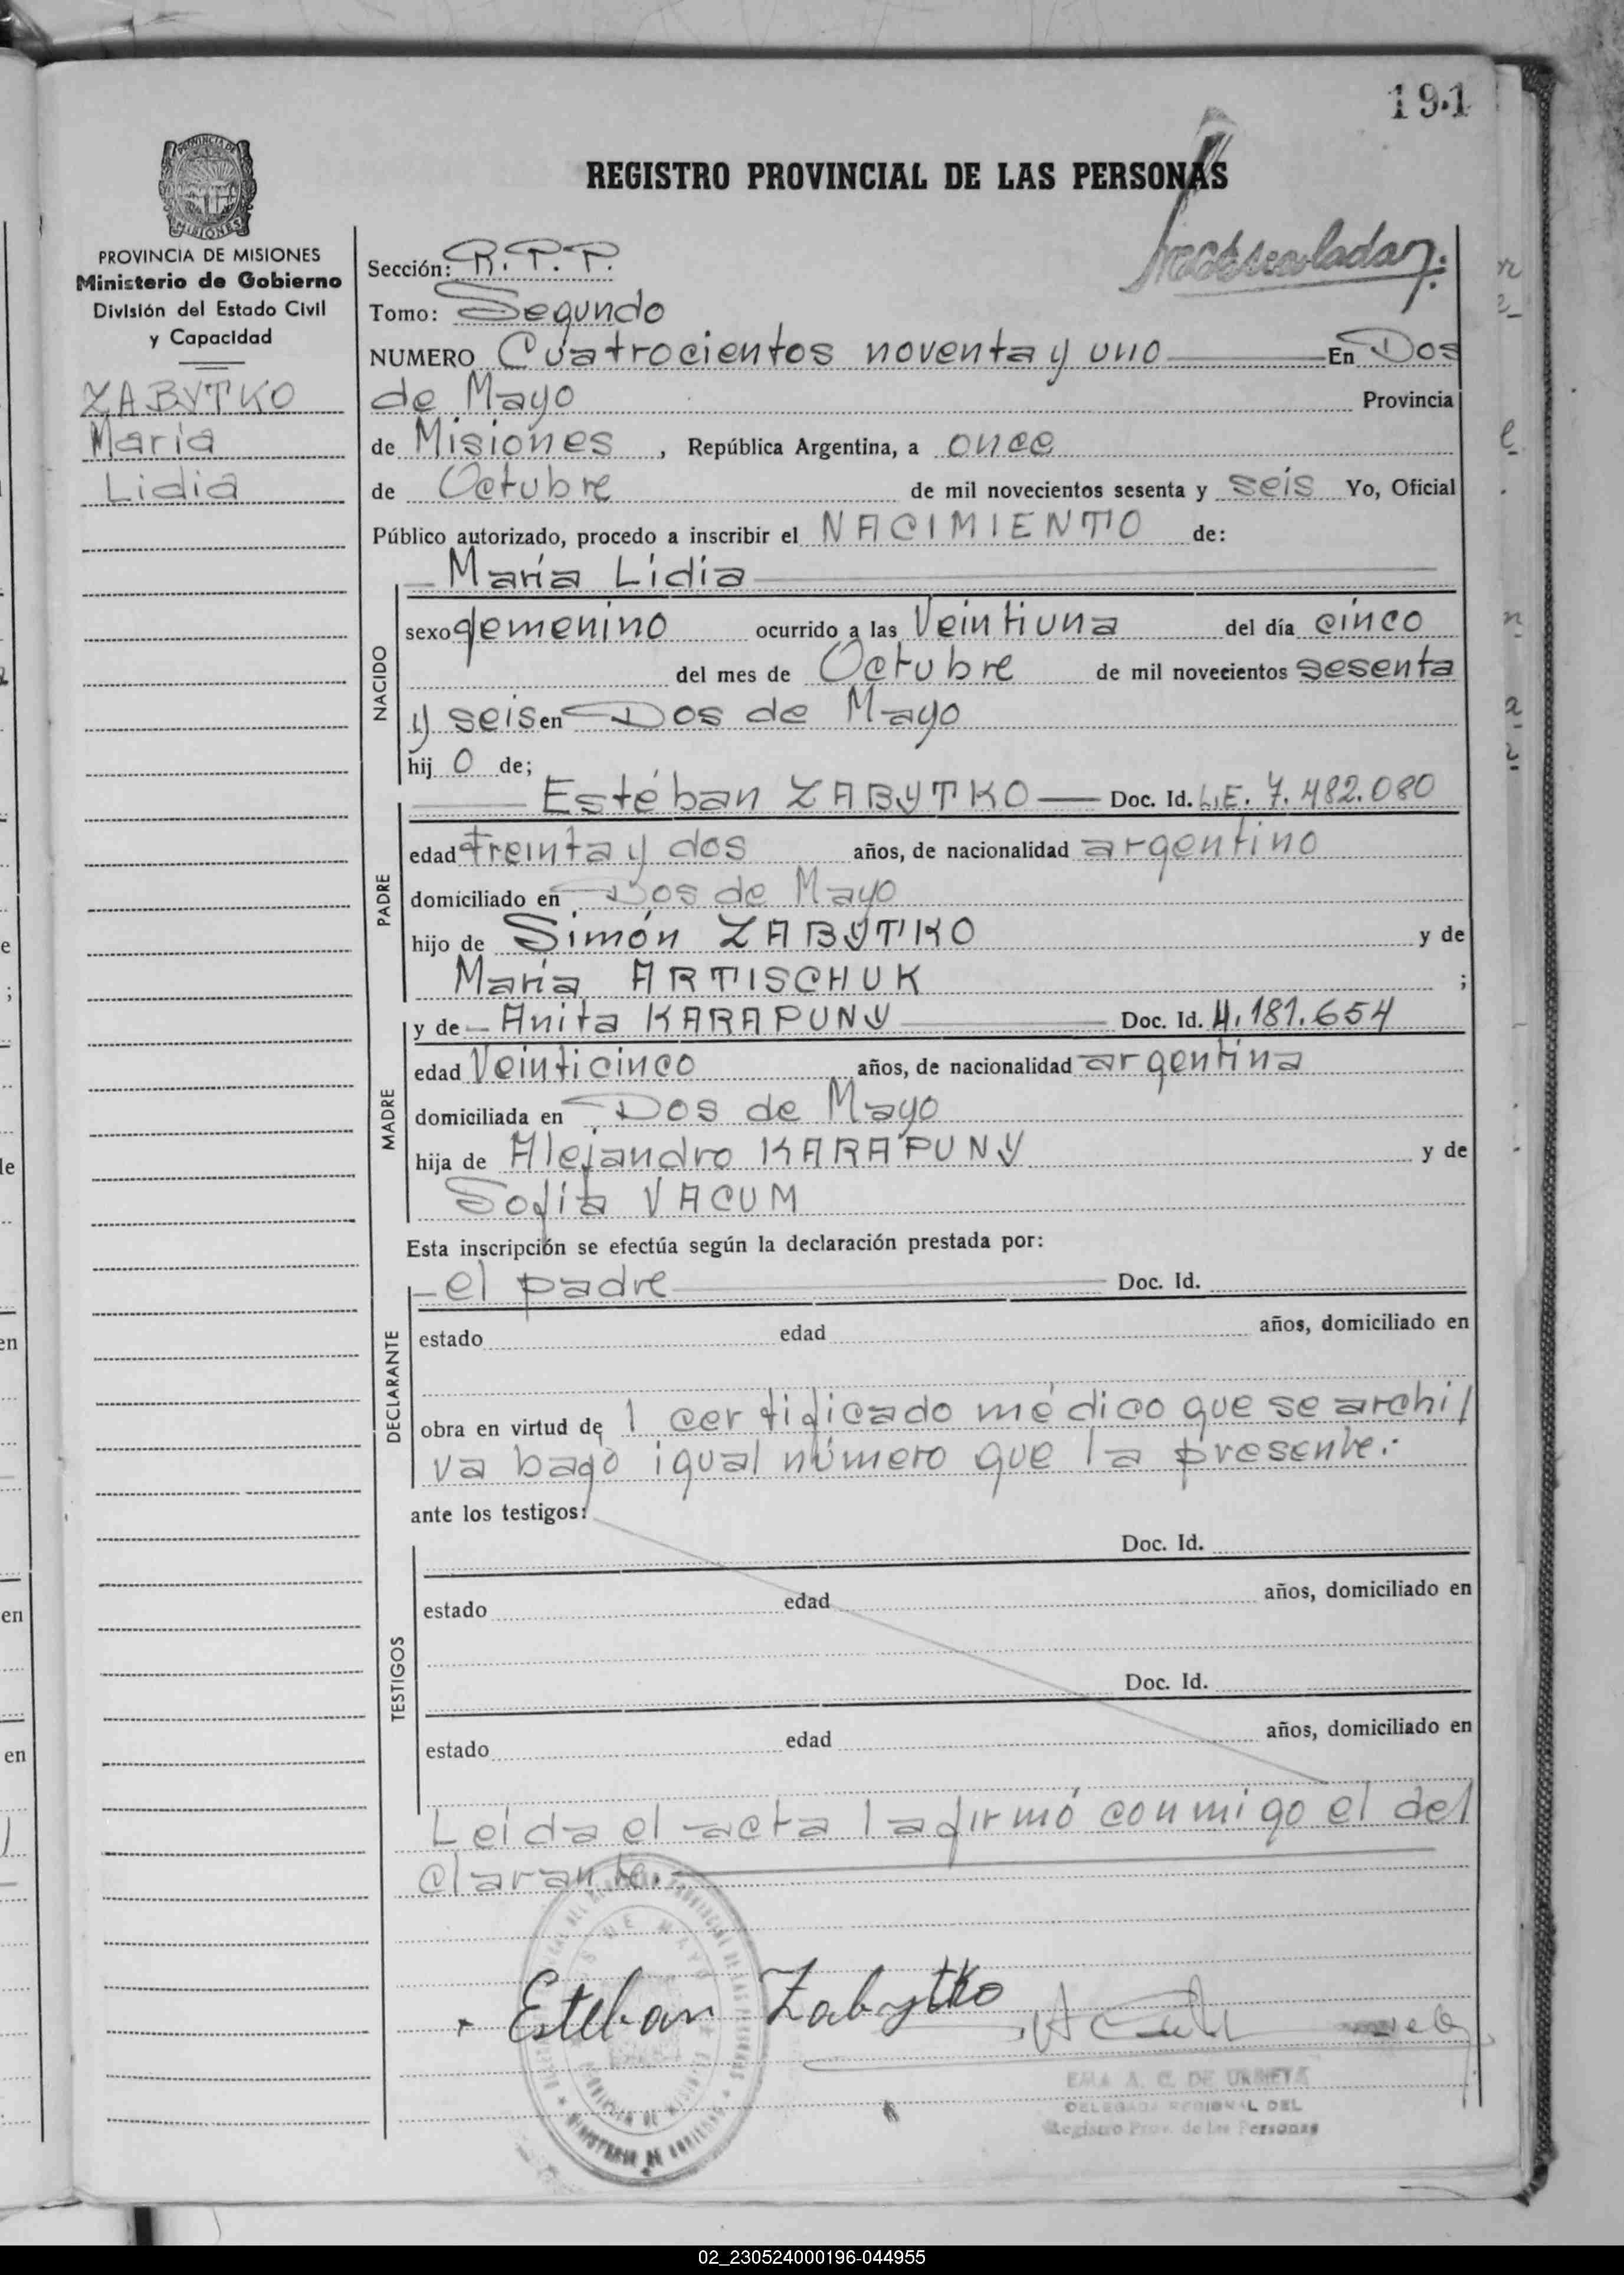 191
REGISTRO PROVINCIAL DE LAS PERSONAS
PROVINCIA DE MISIONES
Ministerio de Gobierno
División del Estado Civil
y Capacidad
ZABYTKO
María
Lidia
Sección: R.P.P.
Tomo: Segundo
NUMERO Cuatrocientos noventa y uno En Dos
de Mayo Provincia
de Misiones, República Argentina, a once
de Octubre de mil novecientos sesenta y seis Yo, Oficial
Público autorizado, procedo a inscribir el NACIMIENTO de:
María Lidia
NACIDO
sexo femenino ocurrido a las Veintiuna del día cinco
del mes de Octubre de mil novecientos sesenta
y seis en Dos de Mayo
hij o de;
Estéban ZABYTKO Doc. Id. L.E. 7.482.080
PADRE
edad treinta y dos años, de nacionalidad argentino
domiciliado en Dos de Mayo
hijo de Simón ZABYTKO y de
María ARTISCHUK ;
y de Anita KARAPUNY Doc. Id. 4.181.654
MADRE
edad Veinticinco años, de nacionalidad argentina
domiciliada en Dos de Mayo
hija de Alejandro KARAPUNY y de
Sofia VACUM
Esta inscripción se efectúa según la declaración prestada por:
el padre Doc. Id.
DECLARANTE
estado edad años, domiciliado en
obra en virtud de 1 certificado médico que se archi/
va bajo igual número que la presente.
ante los testigos:
Doc. Id.
TESTIGOS
estado edad años, domiciliado en
Doc. Id.
estado edad años, domiciliado en
Leída el acta la firmó conmigo el de/
clarante.
Esteban Zabytko
EMA A. C. DE URRIETA
DELEGADA REGIONAL DEL
Registro Prov. de las Personas
MINISTERIO DE GOBIERNO
02_230524000196-044955